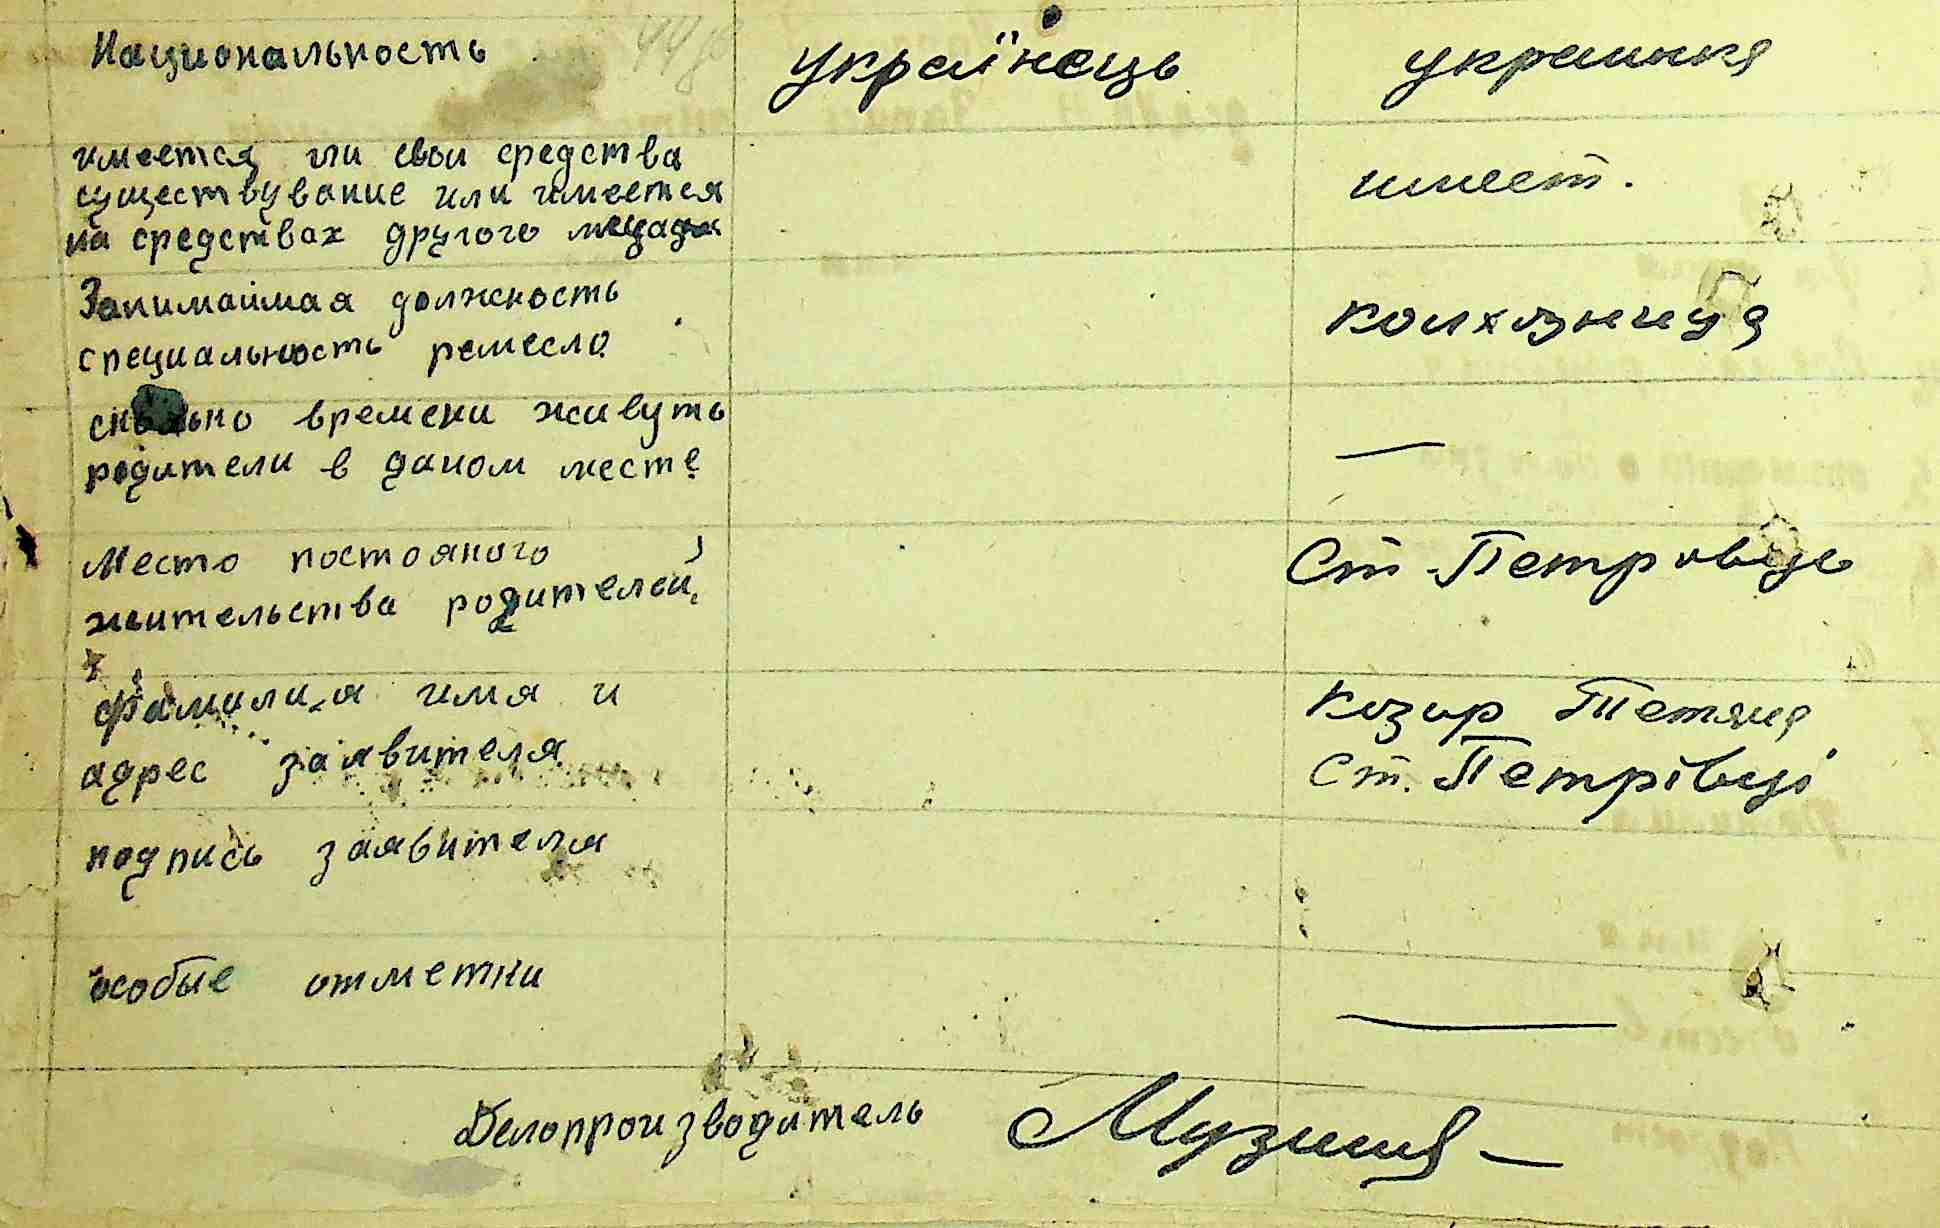 Национальность україńець украинка
имеется ли свои средства
существувание или имеется
на средствах другого
имеет.
Занимаймая должность
специальность ремесло
колхозница
сколько времени живуть
родители в даном месте
—
Место постояного
жительства родителей
Ст-Петровцы
Фамилия имя и
адрес заявителя
Козир Тетяна
Ст. Петрівці
подпись заявителя
особые отметки
—
Делопроизводитель